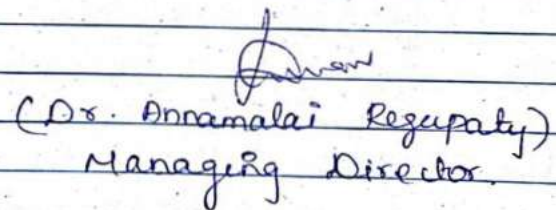 (Dr. Annamalai Regupaty)
Managing Director.